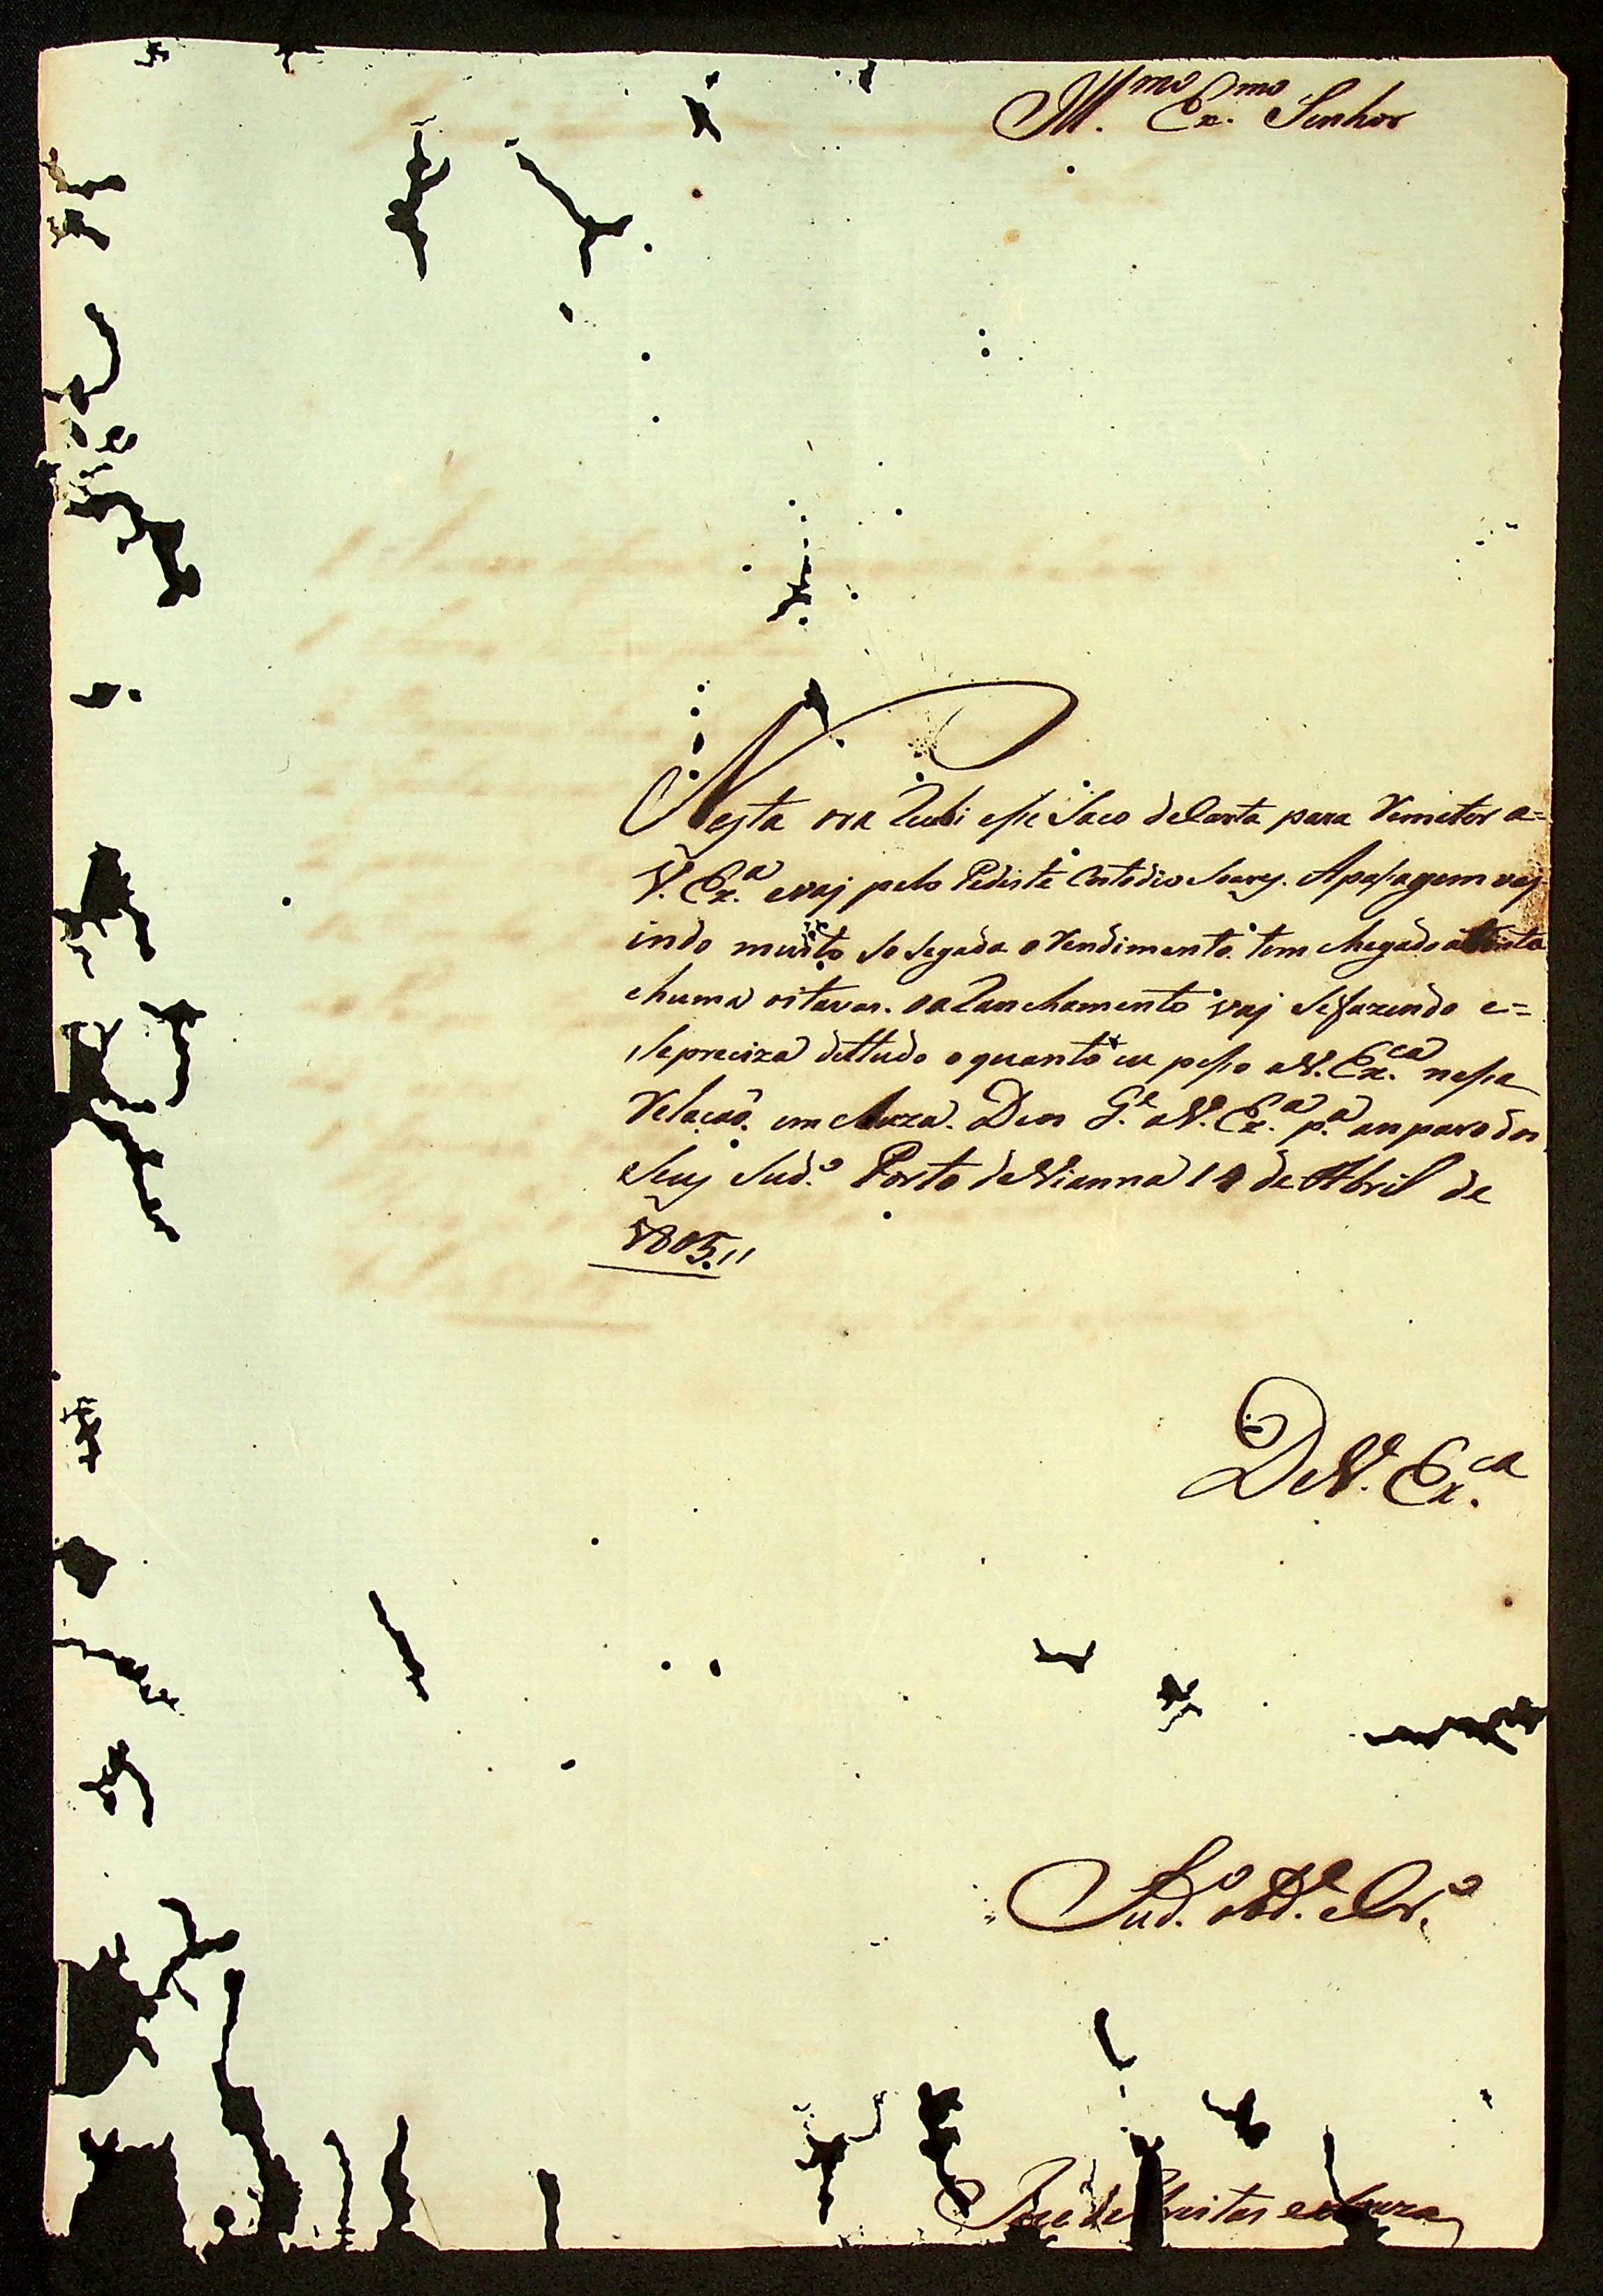 Ill.mo Ex.mo Senhor
Nesta ora Recebi esse Saco de Carta para Remeter a=
V. Ex.a e vaj pelo Pediste Custodio Soarej. A pasagem vaj
indo muito so segada o Rendimento tem chegado a
e huma oitavas. o a Ranchamento vaj se fazendo e=
se preciza de ttudo o quanto eu pesso a V. Ex.ca nesa
Relacaõ. em cluza. Deos G.e a V. Ex.a p.a an paro dos
Seuj Sud.o Porto de Vianna 10 de Abril de
1805,,
De V. Ex.ca
Sud.o obd.e e Cr.o
Joze de Freitas e Souza